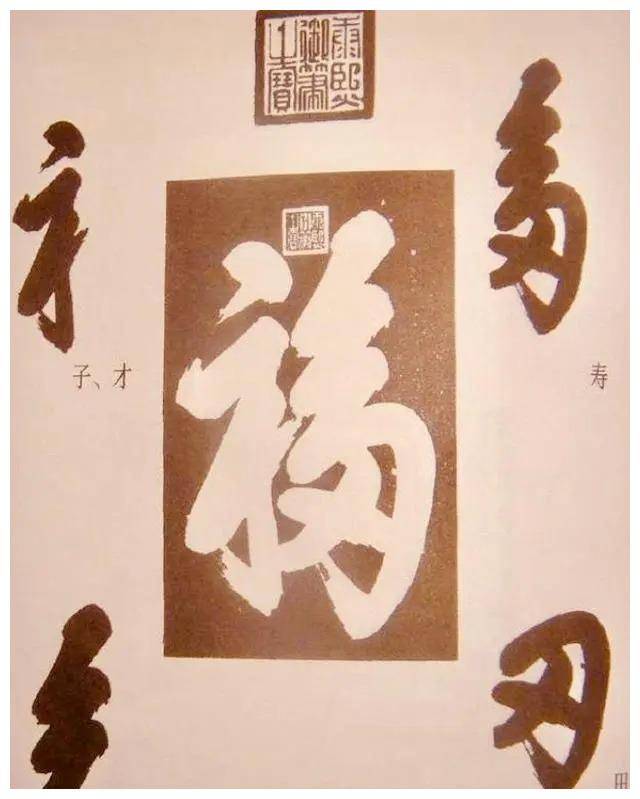 康熙御筆之寶
康熙御筆之寶
福
子、才
寿
田